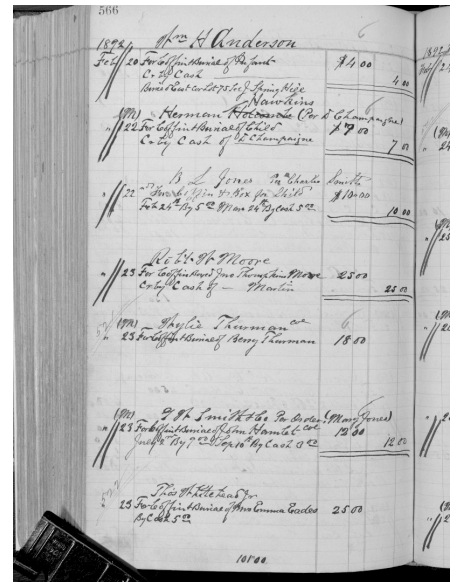 566
Wm H Anderson
1892
Feb 20 For Coffin & Burial of Infant $4 00
Cr By Cash 4 00
Buried East Cor Lot 75 Sec J Spring Hill
Hawkins
(M) Herman (Per D Champaigne)
" 22 For Coffin & Burial of Child $7 00
Cr By Cash of D Champaigne 7 00
B L Jones Charlie Smith
" 22 Coffin & Box for Child $10 00
Feb 24th By 5 00 Mar 24th By Cash 5 00 10 00
Robt W Moore
" 23 For Coffin Jno Thompkins Moore 25 00
Cr By Cash of — Martin 25 00
(M) Wylie Thurman col
" 23 For Coffin & Burial of Berry Thurman 18 00
(M) Smith & Co Per Order (Mary Jones)
" 23 For Coffin & Burial of John Hamlet col 12 00
July 2nd By 9 00 Sep 10th By Cash 3 00 12 00
Thos Whitehead Jr
23 For Coffin & Burial of Mrs Emma Eades 25 00
By Cash 5 00
101 00